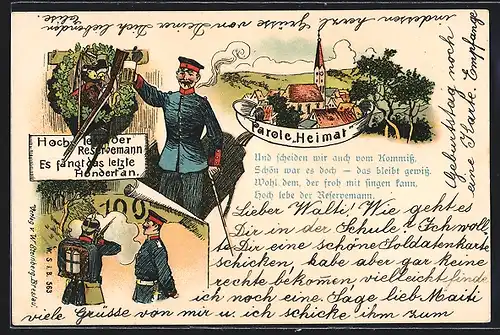 Hoch lebe der
Reservemann
Es fängt das letzte
Hundert an.
100
Parole „Heimat“
Und scheiden wir auch vom Kommiß,
Schön war es doch — das bleibt gewiß.
Wohl dem, der froh mit singen kann,
Hoch lebe der Reservemann.
Verlag v. W. Steinberg, Breslau.
W. S. i. B. 563
Lieber Walti! Wie geht es
Dir in der Schule? Ich woll
te Dir eine schöne Soldatenkarte
schicken, habe aber gar keine
rechte bekomen vielleicht finde
ich noch eine. Sage lieb Maiti
viele Grüsse von mir u. ich schicke ihm zum
Geburtstag noch
eine Karte. Empfange
indessen herzl. Grüsse von Deiner Dich liebenden
Elise.